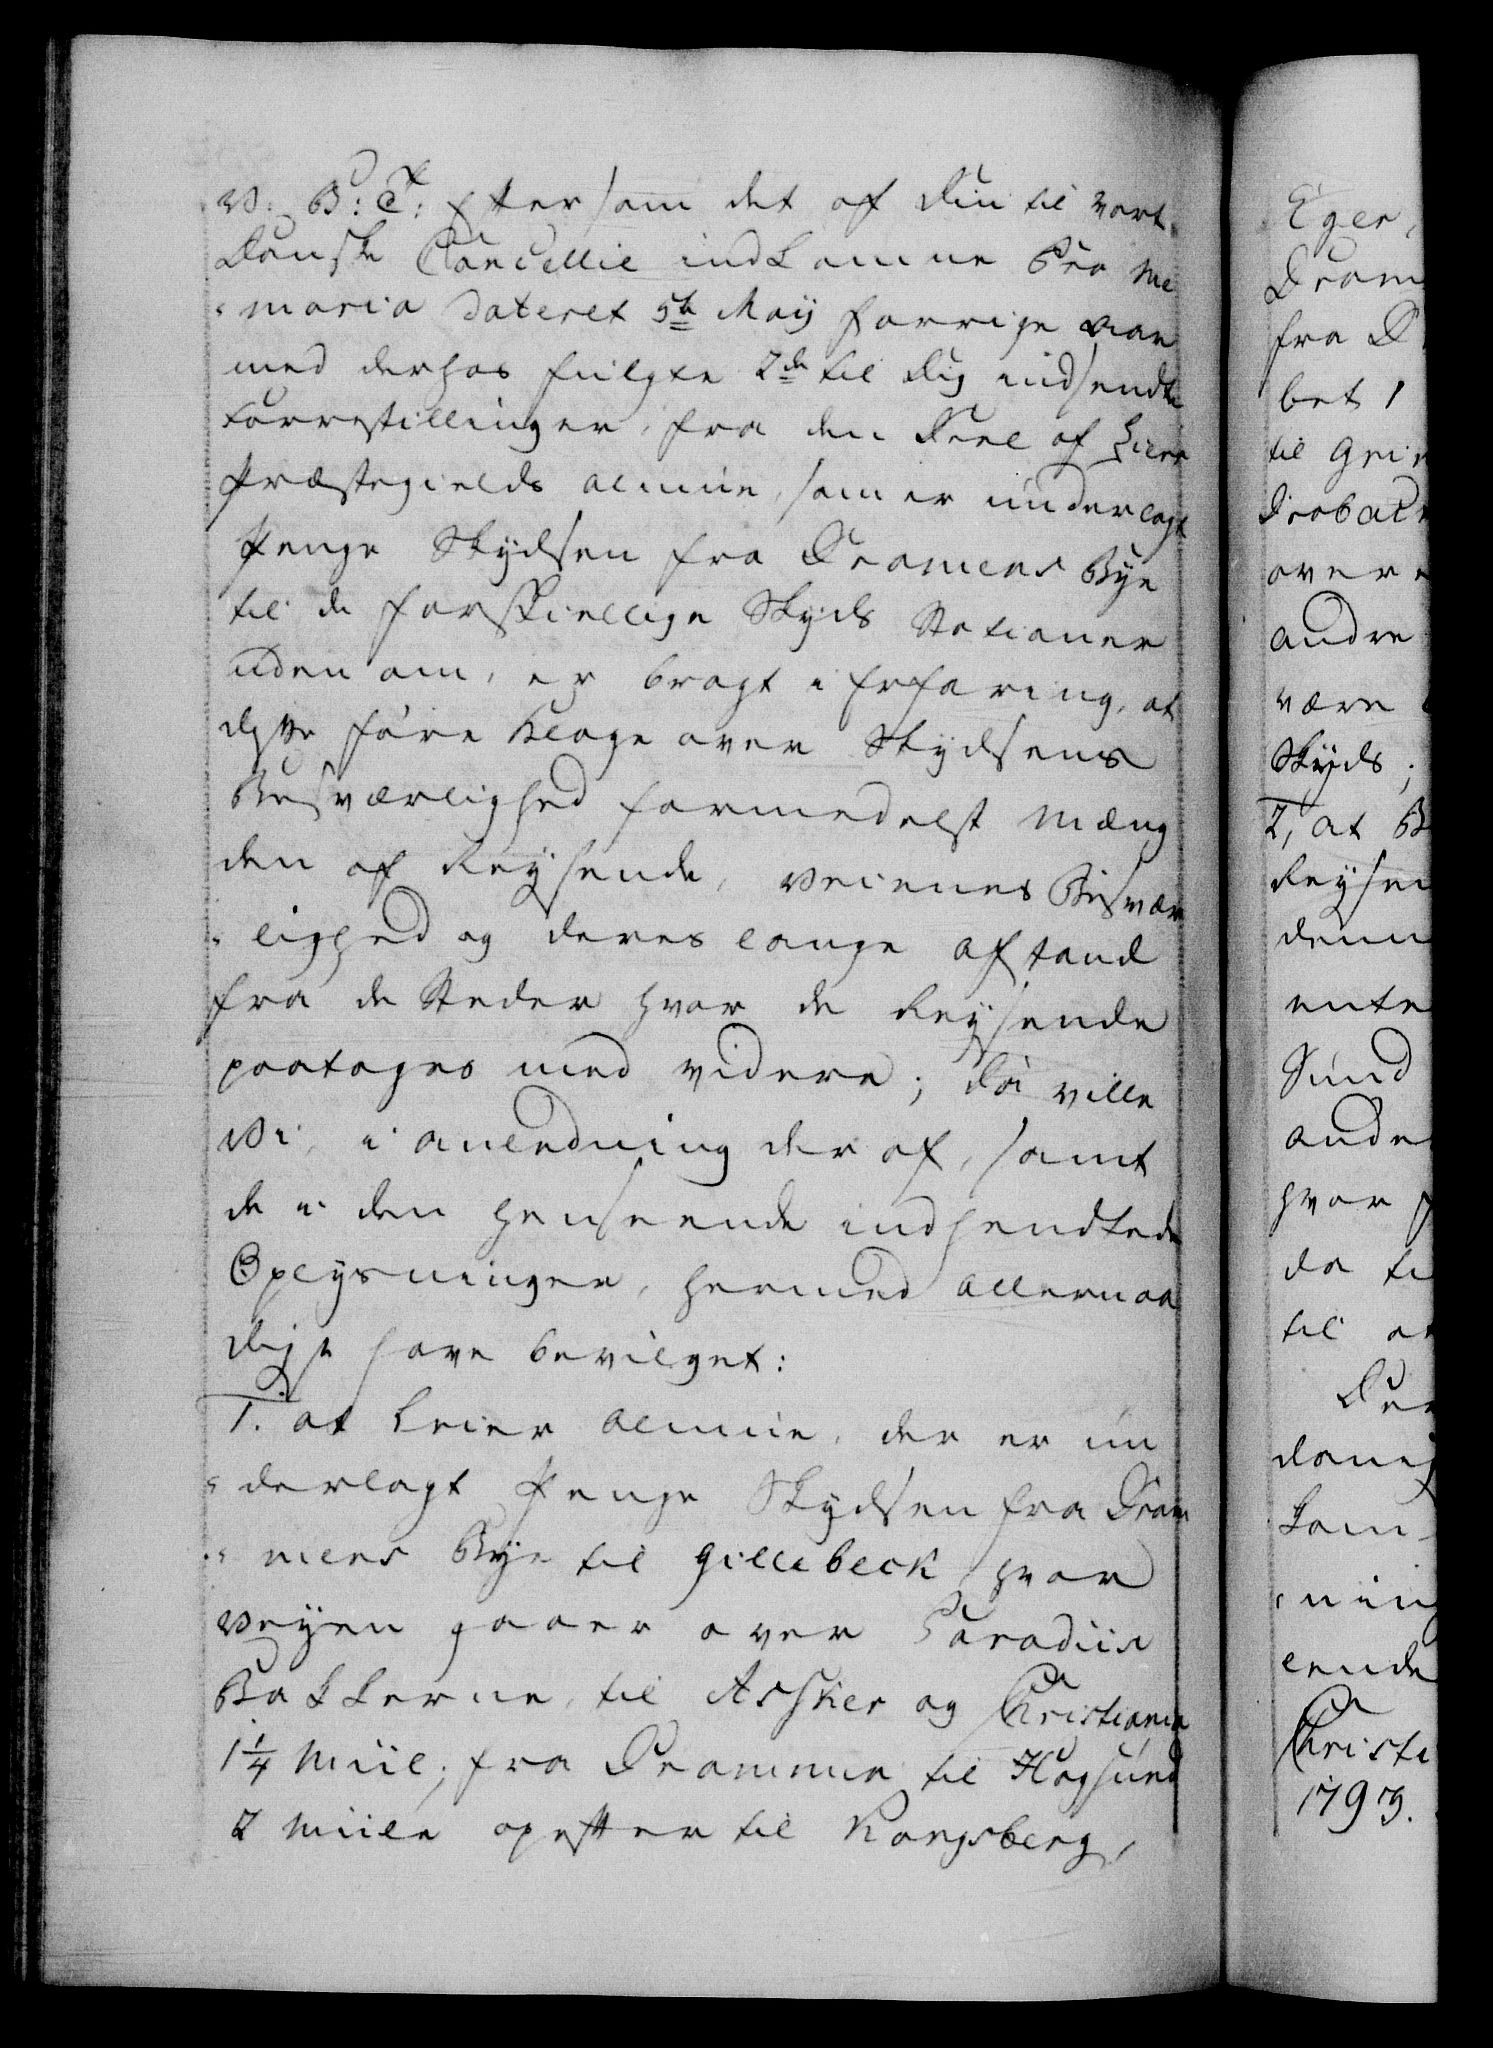 V: B: T: Eftersom det af Din til vort
Danske Cancellie indkomne Pro me
moria dateret 5te Maij forrige Aar
med derhos fulgte 2de til Dig indsendte
Forestillinger, fra den Deel af Liers
Præstegields Almue, som er underlagt
Penge Skydsen fra Dramens Bye
til de forskiellige Skyds Stationer
uden om, er bragt i Erfaring, at
disse føre Klage over Skydsens
Besværlighed formedelst Mæng
den af Reysende, Veienes Besvær
lighed og deres lange Afstand
fra de Steder hvor de Reysende
paatages med videre; Da ville
Vi, i Anledning der af, samt
de i den Henseende indhendtede
Oplysninger, hermed allernaa
digst have bevilget:
1. at Leier Almue, der er un
derlagt Penge Skydsen fra Dram
mens Bye til Gillebeck hvor
Veyen gaaer over Paradiis
Bakkerne, til Assker og Christiania
1 1/4 Miil; fra Drammen til Hogsund
2 Miile op efter til Kongsberg,
Eger,
Dram
fra D
bet 1
til Gri
Drobak
over
andre
være
Skyds;
2, at B
Reysen
denn
ente
Sund
ande
hvor
da ti
til
Der
dan
kom
ning
lende
Christi
1793.